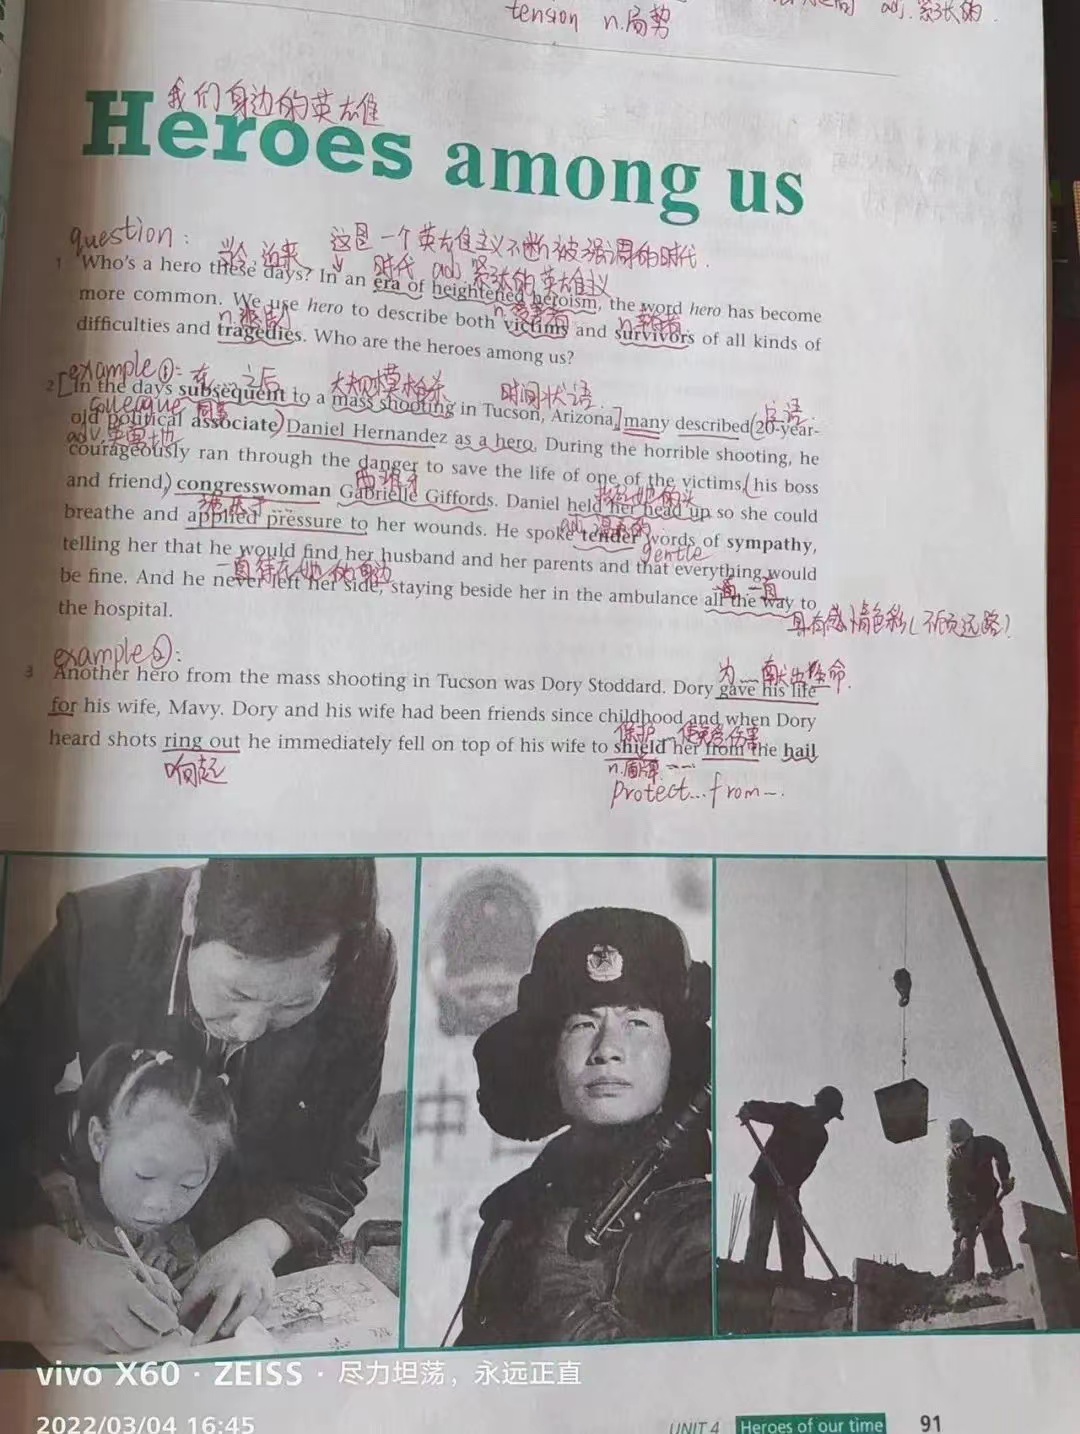 tension n.局势 adj.紧张的.
我们身边的英雄
Heroes among us
question:
当今,近来 这是一个英雄主义不断被强调的时代.
时代 adj.紧张的英雄主义
1 Who's a hero these days? In an era of heightened heroism, the word hero has become
more common. We use hero to describe both victims and survivors of all kinds of
n.受害者
difficulties and tragedies. Who are the heroes among us?
example①: 在……之后 大规模枪杀 时间状语.
2 [In the days subsequent to a mass shooting in Tucson, Arizona,] many described (20-year-
同事
old political associate) Daniel Hernandez as a hero. During the horrible shooting, he
adv.
courageously ran through the danger to save the life of one of the victims, (his boss
and friend,) congresswoman Gabrielle Giffords. Daniel held her head up so she could
breathe and applied pressure to her wounds. He spoke tender words of sympathy,
gentle
telling her that he would find her husband and her parents and that everything would
一直待在她的身边
be fine. And he never left her side, staying beside her in the ambulance all the way to
the hospital.
具有感情色彩(不顾远路)
example②:
为……献出生命.
3 Another hero from the mass shooting in Tucson was Dory Stoddard. Dory gave his life
for his wife, Mavy. Dory and his wife had been friends since childhood and when Dory
保护…使免受伤害
heard shots ring out he immediately fell on top of his wife to shield her from the hail
响起
n.盾牌
protect...from...
中
vivo X60 · ZEISS · 尽力坦荡，永远正直
2022/03/04 16:45
UNIT 4 Heroes of our time 91